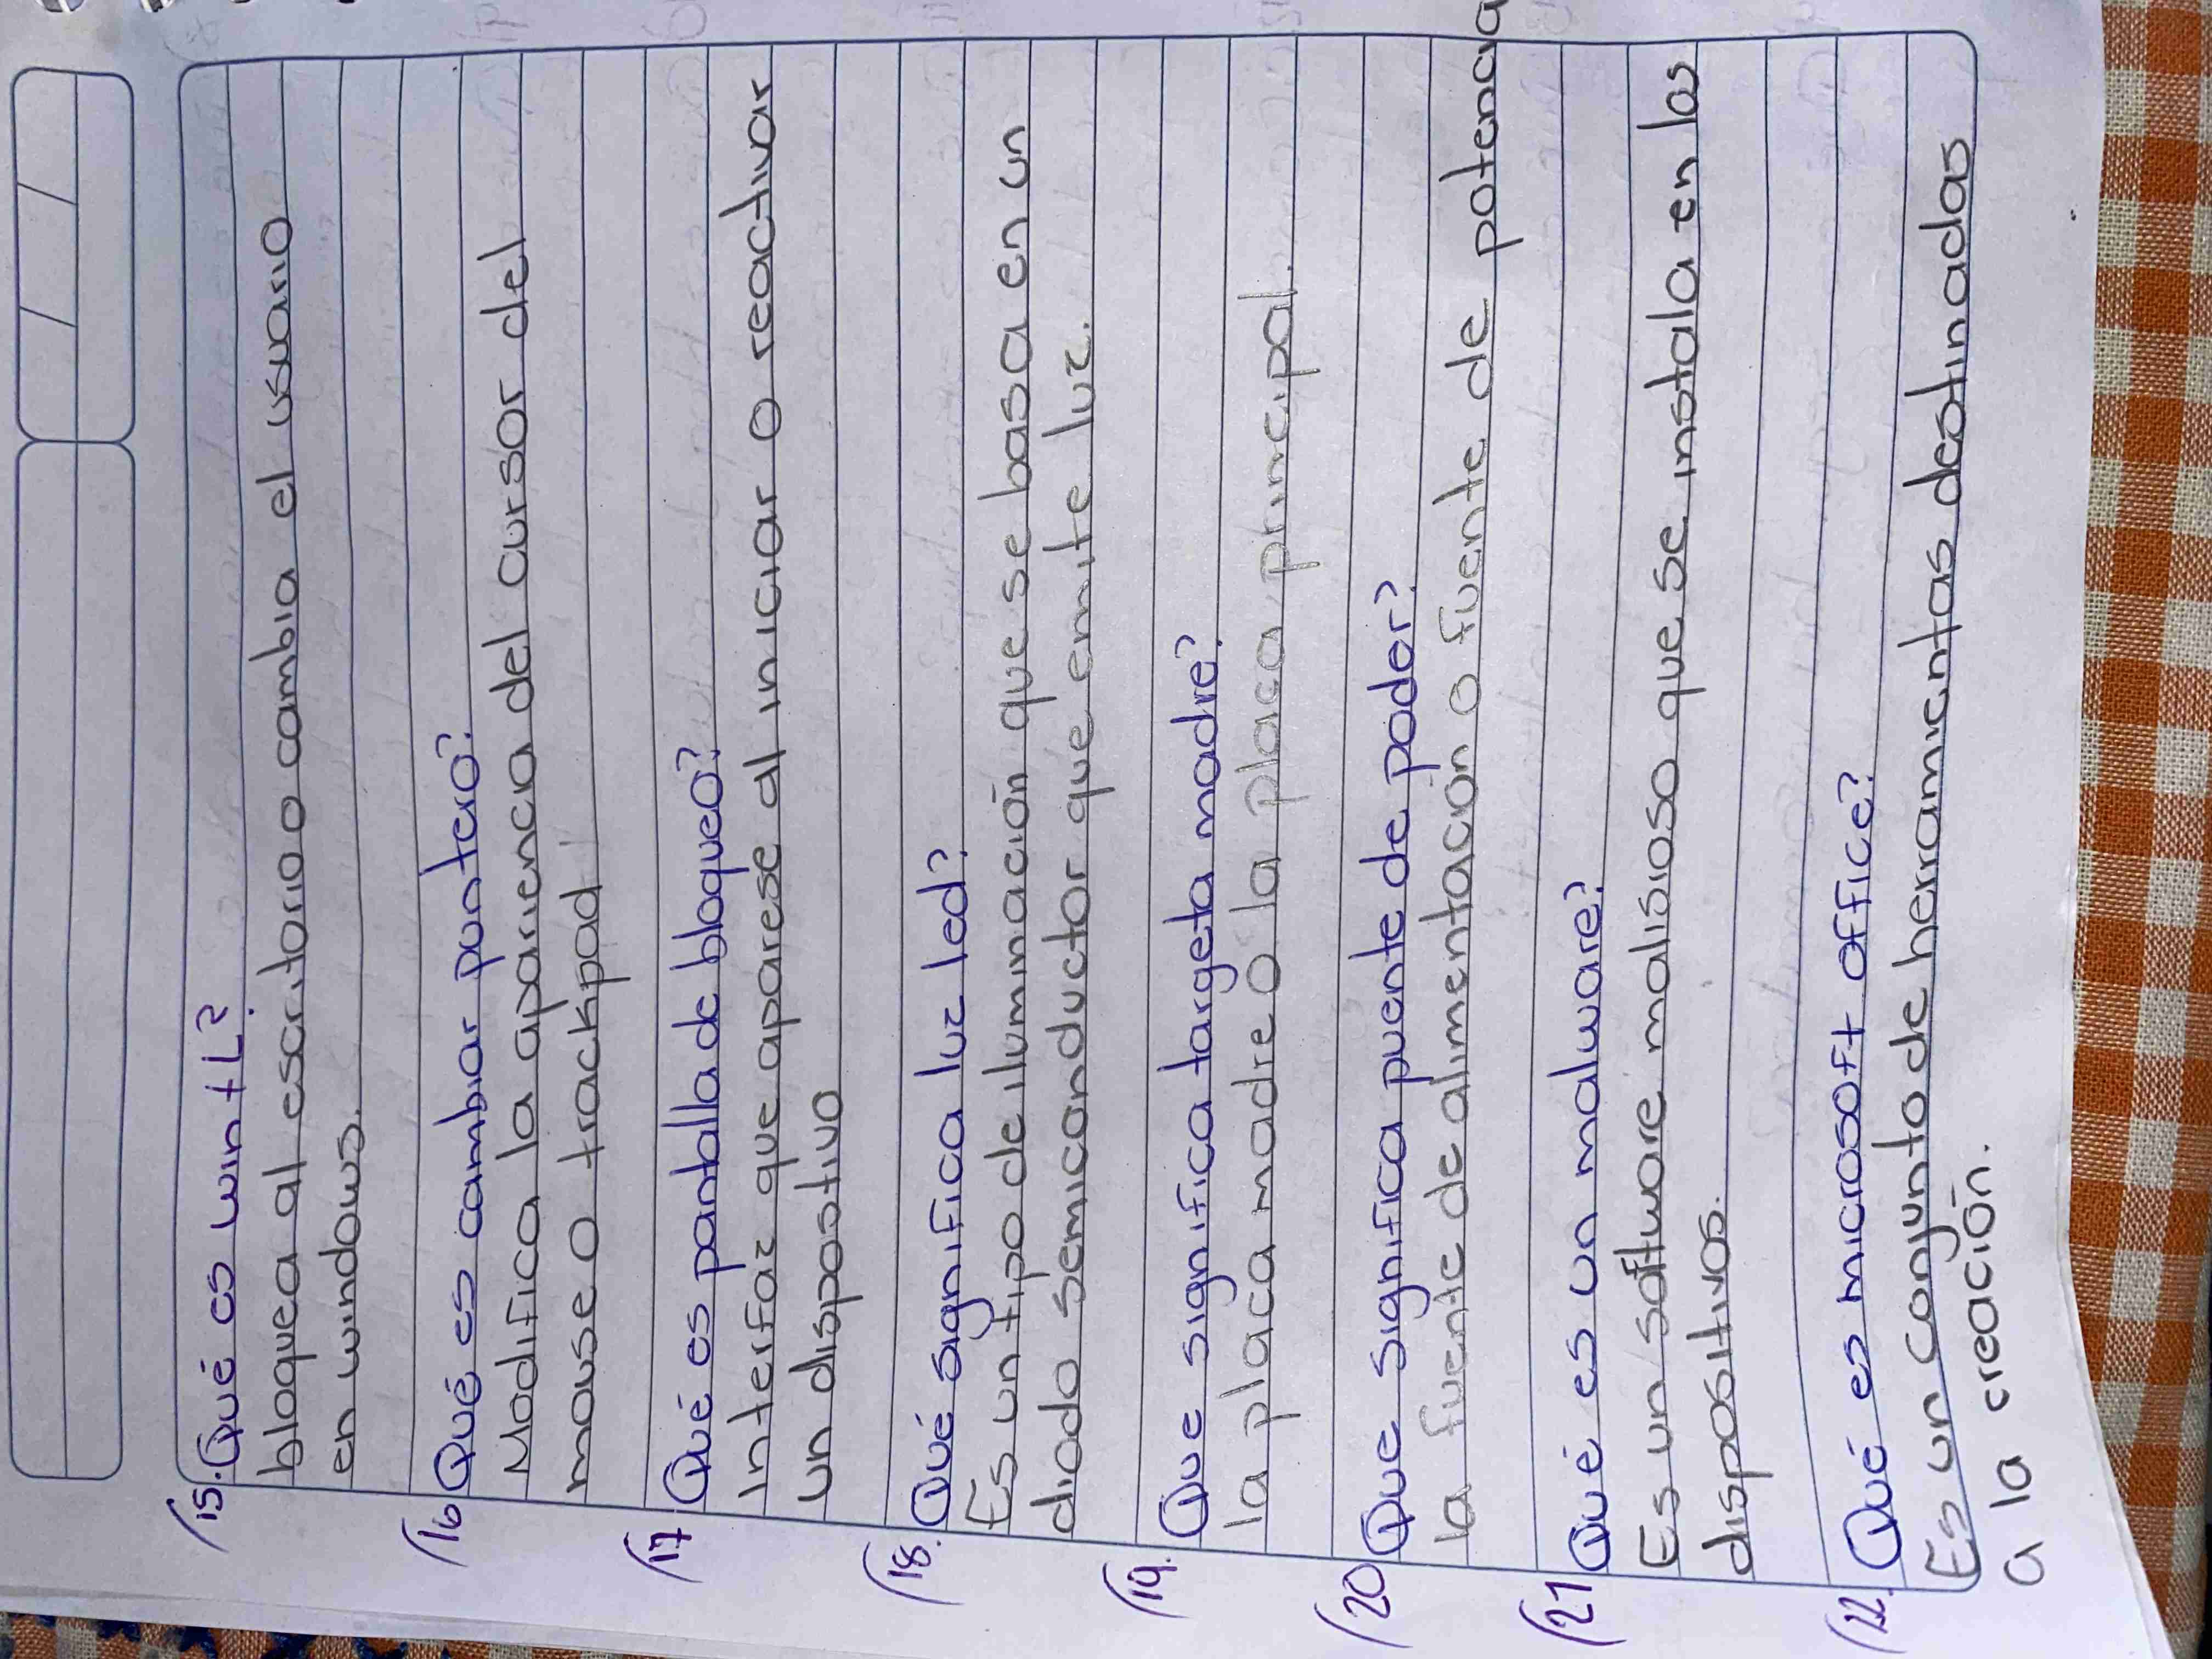 15. Qué es win + L?
bloquea al escritorio o cambia el usuario
en windows.
16 Qué es cambiar puntero?
Modifica la apariencia del cursor del
mouse o trackpad
17 Qué es pantalla de bloqueo?
Interfaz que aparese al iniciar o reactivar
un dispostivo
18. Qué significa luz led?
Es un tipo de iluminación que se basa en un
diodo semiconductor que emite luz.
19. Que significa targeta madre?
la placa madre o la placa principal.
20 Que significa puente de poder?
la fuente de alimentación o fuente de potencia
21 Qué es un malware?
Es un software malisioso que se instala en los
dispositivos.
22. Qué es microsoft office?
Es un conjunto de herramientas destinadas
a la creación.